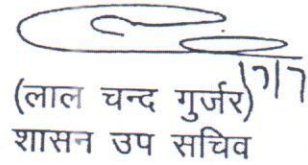 (लाल चन्द गुर्जर)
शासन उप सचिव